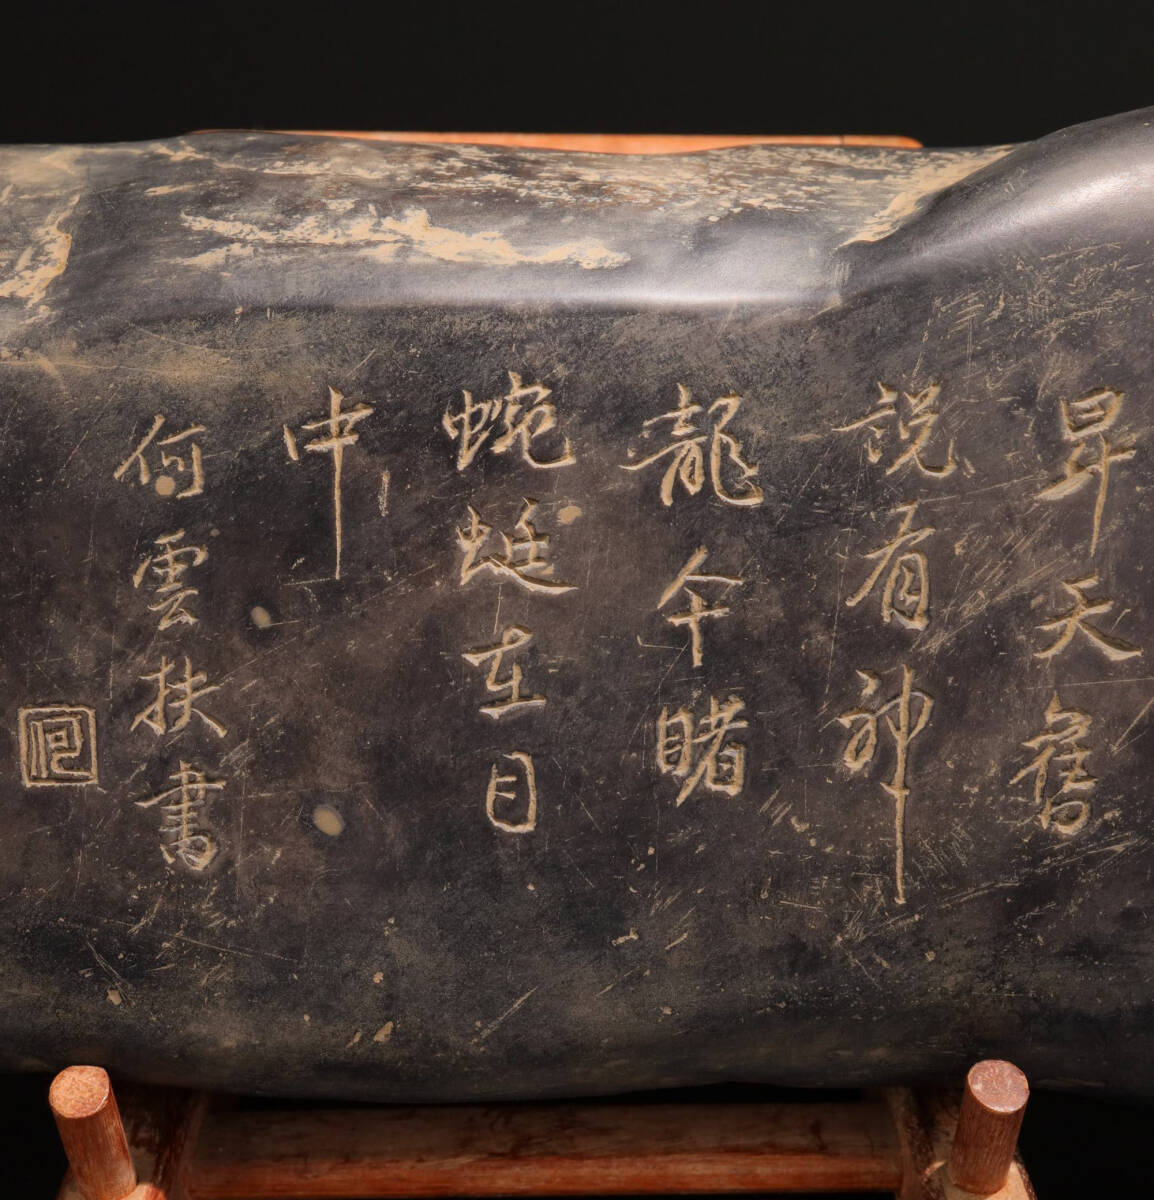 昇天舊
說看神
龍今睹
蜿蜒在目
中
何雲扶書